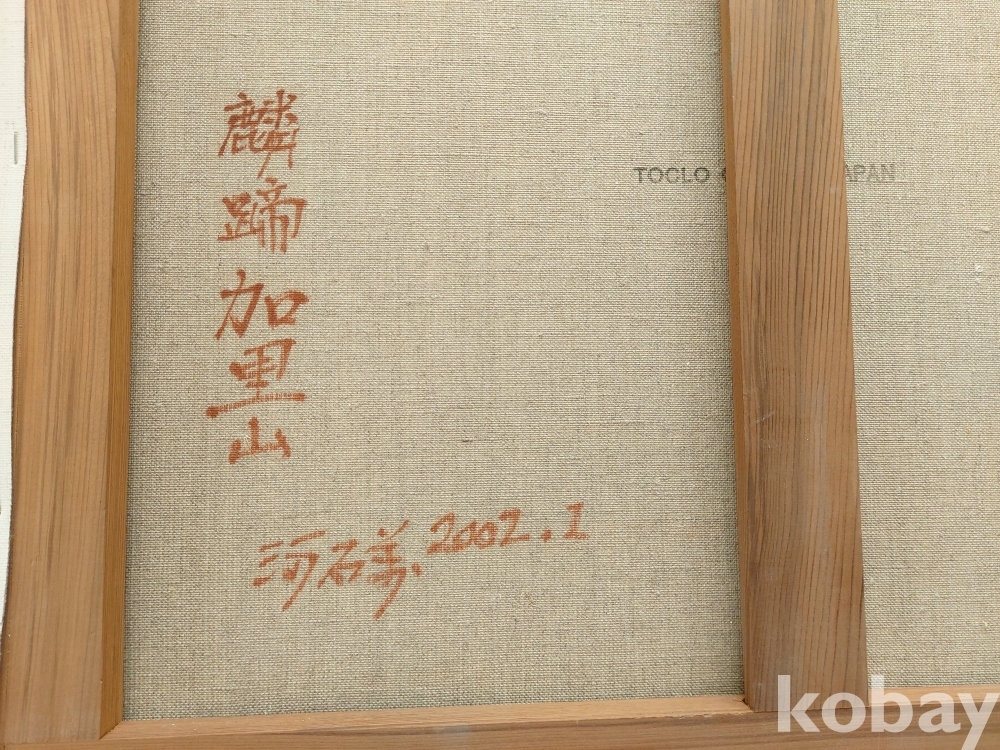 麟蹄加里山
河石美. 2002.1
TOCLO
APAN
kobay